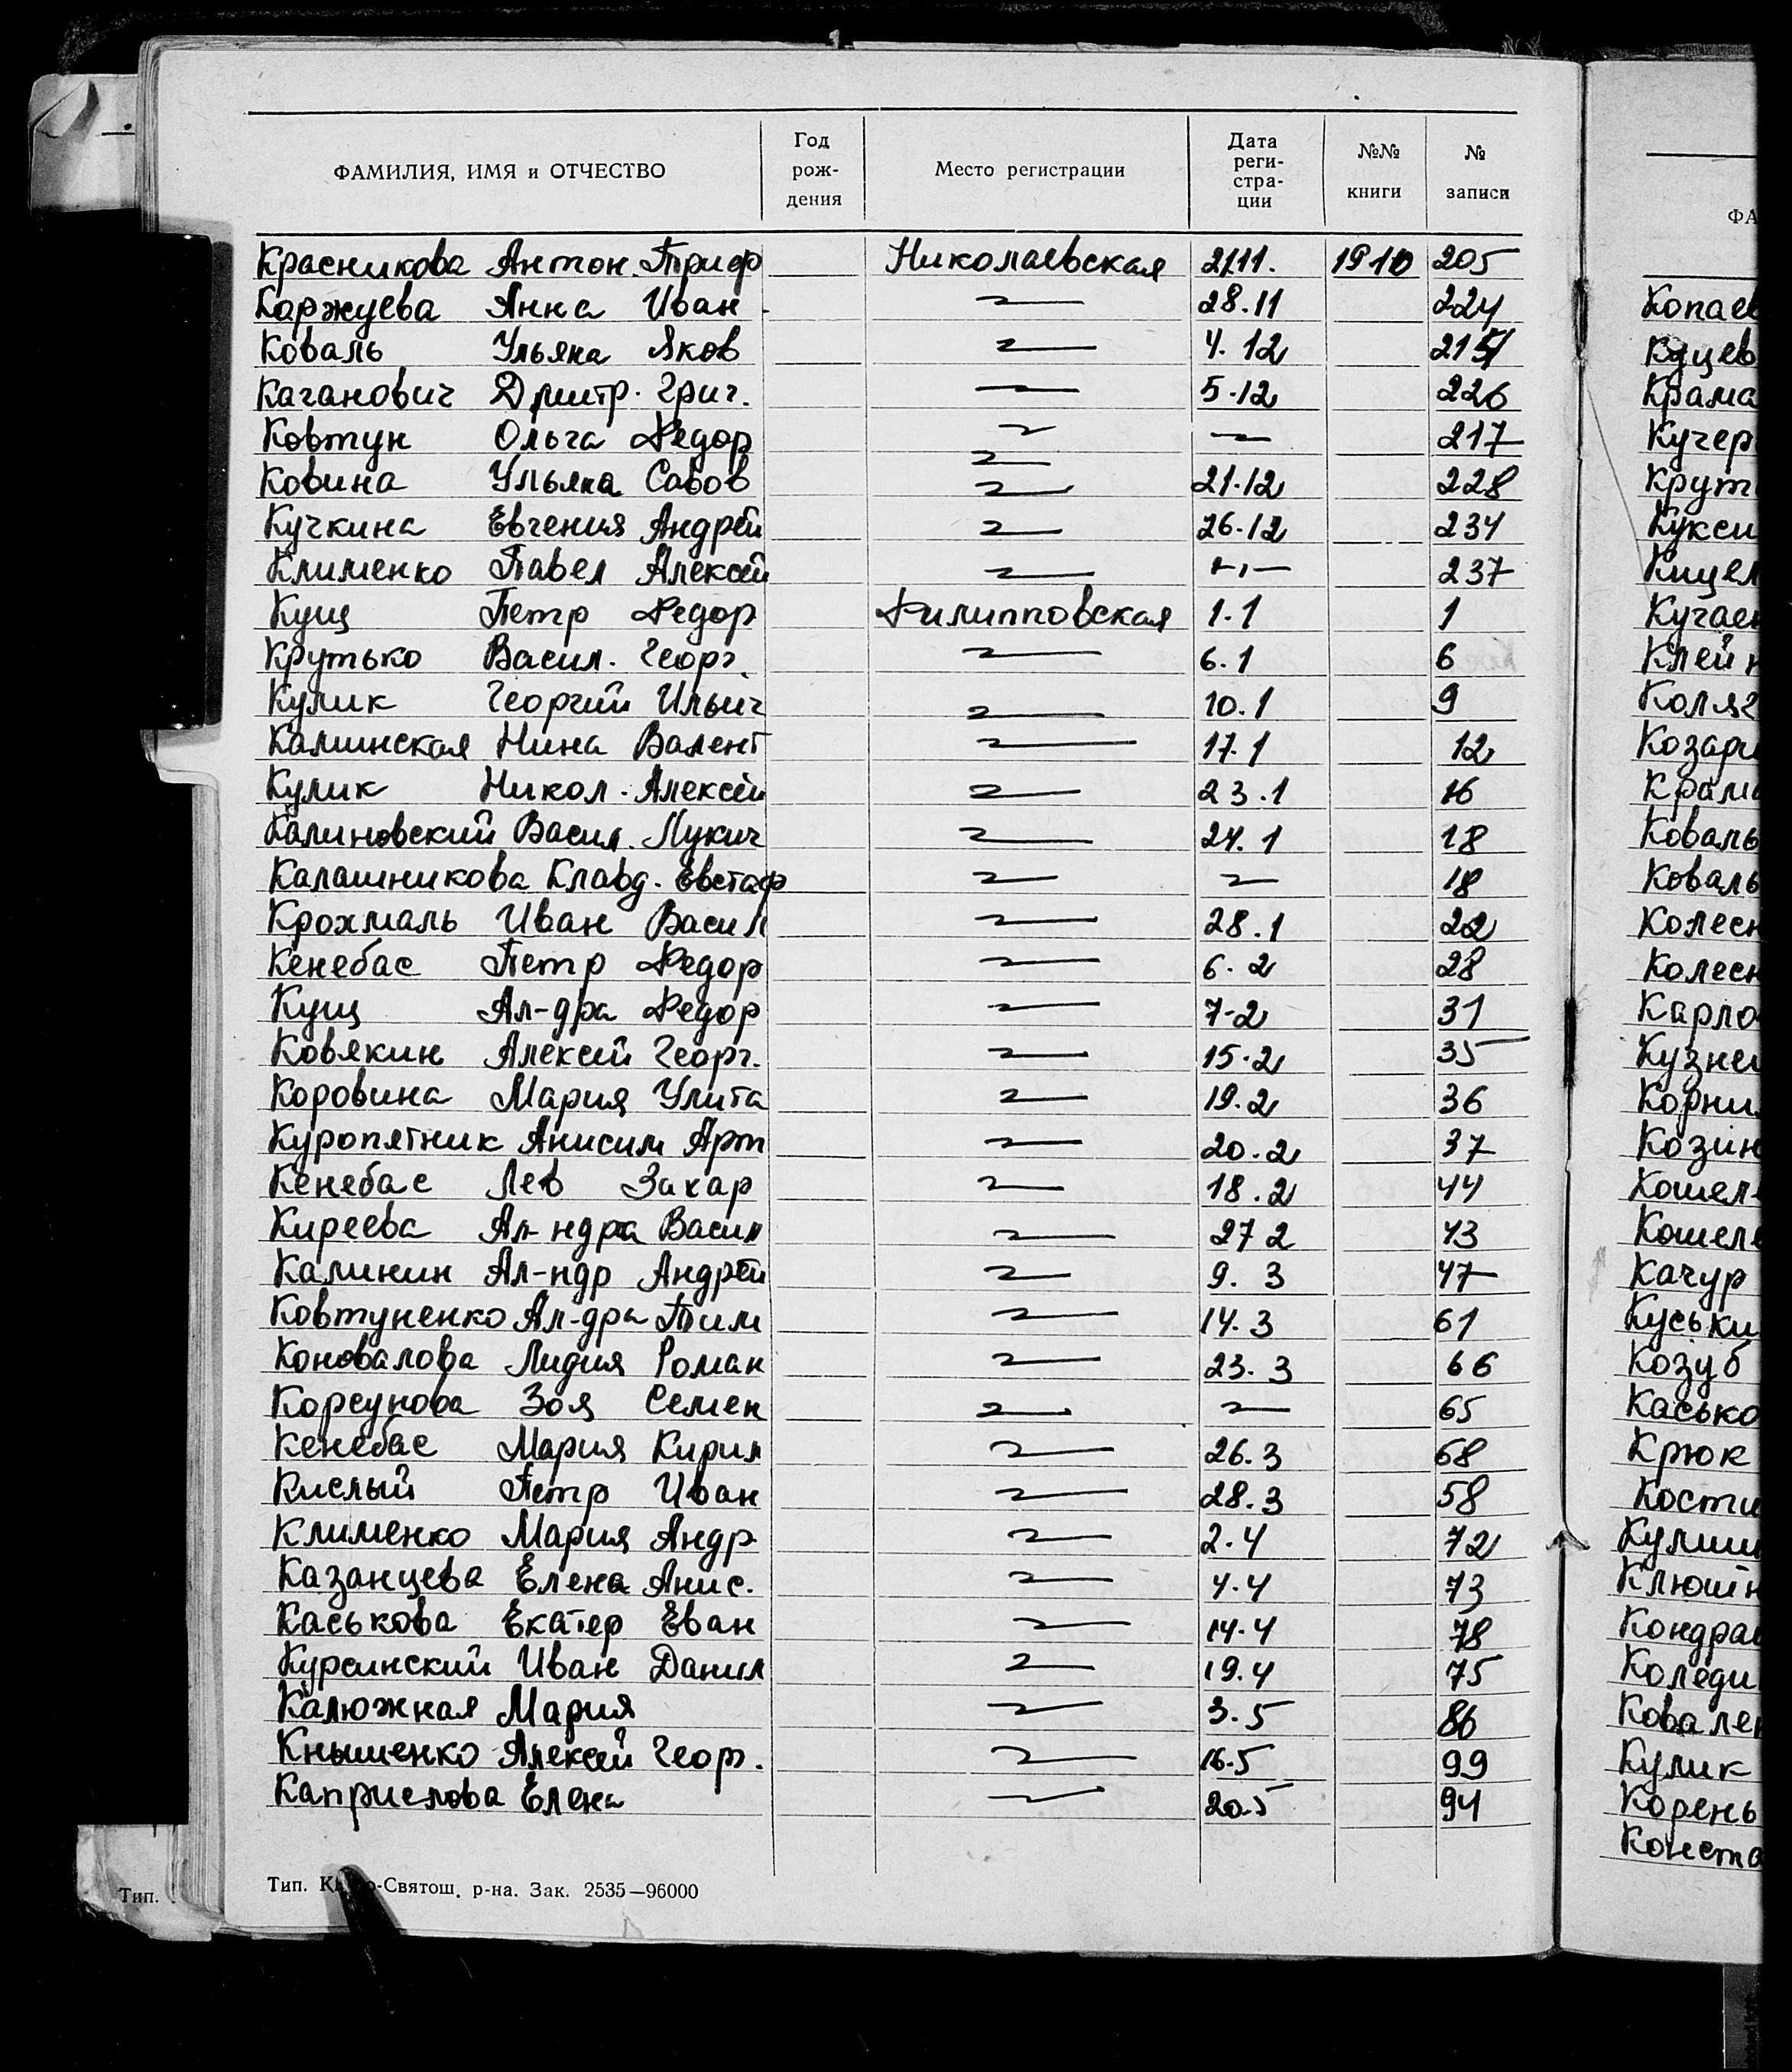 ФАМИЛИЯ, ИМЯ и ОТЧЕСТВО Год рож- дения Место регистрации Дата реги- стра- ции №№ книги № записи
ФА
Красникова Антон. Триф Николаевская 21.11. 1910 205
Каржуева Анна Иван 28.11 224 Копаев
Коваль Ульяна Яков 4.12 Куцев
Каганович Дмитр. Григ. 5.12 226 Крама
Ковтун Ольга Федор 217 Кучер
Ковина Ульяна Савов 21.12 228 Крут
Кучкина Евгения Андрей 26.12 234 Кукси
Клименко Павел Алексей 237 Кицел
Кущ Петр Федор Филипповская 1.1 1 Кучаен
Крутько Васил. Георг. 6.1 6 Клейн
Кулик Георгий Ильич 10.1 9 Коляг
Калинская Нина Валент 17.1 12 Козари
Кулик Никол. Алексей 23.1 16 Крама
Калиновский Васил. Лукич 24.1 18 Коваль
Калашникова Клавд. Евстаф 18 Коваль
Крохмаль Иван Васил 28.1 22 Колесн
Кенебас Петр Федор 6.2 28 Колесн
Кущ Ал-дра Федор 7-2 31 Карло
Ковякин Алексей Георг. 15.2 35 Кузне
Коровина Мария Улита 19.2 36 Корни
Куропятник Анисим Арт 20.2 37 Козин
Кенебас Лев Захар 18.2 44 Кошел
Киреева Ал-ндра Васил 27 2 43 Кошеле
Калинин Ал-ндр Андрей 9. 3 47 Качур
Ковтуненко Ал-дра Тим 14.3 61 Куськи
Коновалова Лидия Роман 23.3 66 Козуб
Корсунова Зоя Семен 65 Касько
Кенебас Мария Кирил 26.3 68 Крюк
Кислый Петр Иван 28.3 58 Кости
Клименко Мария Андр. 2.4 72 Кулиш
Казанцева Елена Анис. 4.4 73 Клюшн
Каськова Екатер Еван 14.4 78 Кондра
Курсинский Иван Данил 19.4 75 Коледи
Калюжная Мария 3.5 86 Ковален
Кнышенко Алексей Георг. 16.5 99 Кулик
Каприелова Елена 20.5 94 Корень
Конста
Тип. Тип. р-на. Зак. 2535—96000